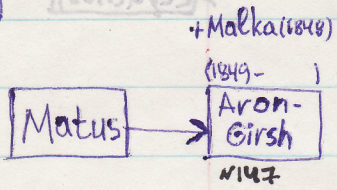 ·+Malka(1848)
(1849-      )
Matus
Aron-
Girsh
N147